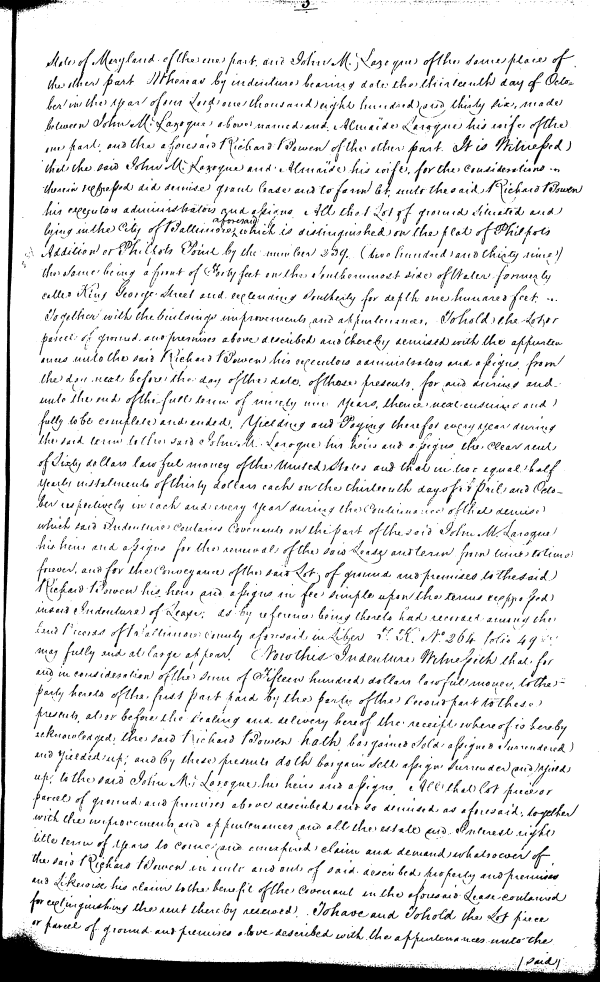 3
State of Maryland of the one part, and John M. Laroque of the same place of
the other part Whereas by indenture bearing date the thirteenth day of Octo-
ber in the year of our Lord one thousand eight hundred and thirty six, made
between John M. Laroque above named and, Almaide Laroque his wife of the
one part, and the aforesaid Richard Bowen of the other part. It is Witnessed
that the said John M. Laroque and Almaide his wife, for the considerations
therein expressed did demise grant lease and to farm let, unto the said Richard Bowen
his executors administrators and assigns, All that Lot of ground situated and
lying in the City of Baltimore aforesaid, which is distinguished on the plat of Philpots
Addition or Philpots Point by the number 239. (two hundred and thirty nine)
the same being a front of Forty feet on the southernmost side of Water formerly
called King George Street and extending Southerly for depth one hundred feet.
Together with the buildings improvements and appurtenances. To hold the Lot or
parcel of ground and premises above described and thereby demised with the appurten-
ances unto the said Richard Bowen his executors administrators and assigns, from
the day next before the day of the date of those presents, for and during and
unto the end of the full term of ninety nine Years, thence next ensuing and
fully to be complete and ended, Yielding and Paying therefor every year during
the said term to the said John M. Laroque his heirs and assigns the clear rent
of Sixty dollars lawful money of the United States and that in two equal half
yearly instalments of thirty dollars each on the thirteenth days of April and Octo-
ber respectively in each and every Year during the Continuance of that demise
which said Indenture contains Covenants on the part of the said John M. Laroque
his heirs and assigns for the renewal of the said Lease and term from time to time
forever, and for the Conveyance of the said Lot of ground and premises to the said
Richard Bowen his heirs and assigns in fee simple upon the terms expressed
in said Indenture of Lease; as by reference being thereto had recorded among the
Land Records of Baltimore County aforesaid in Liber T. K. No 264 folio 49
may fully and at large appear. (Now this Indenture Witnesseth that, for
and in consideration of the sum of Fifteen hundred dollars lawful money, to the
party hereto of the first part paid by the party of the Second part to these
presents, at or before the Sealing and delivery hereof the receipt whereof is hereby
acknowledged, the said Richard Bowen hath bargained Sold assigned Surrendered
and Yielded up; and by these presents doth bargain sell assign surrender and yield
up, to the said John M. Laroque his heirs and assigns. All that lot piece or
parcel of ground and premises above described and so demised as aforesaid, together
with the improvements and appurtenances and all the estate and Interest right
title term of Years to come and unexpired claim and demand whatsoever of
the said Richard Bowen in unto and out of said described property and premises
and Likewise his claim to the benefit of the Covenant in the aforesaid Lease contained
for extinguishing the rent thereby reserved. To have and To hold the Lot piece
or parcel of ground and premises above described with the appurtenances unto the
(said)